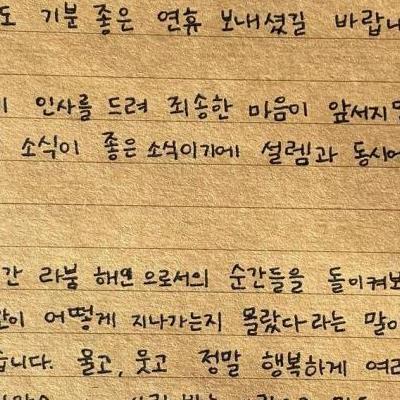 도 기분 좋은 연휴 보내셨길 바랍니
인사를 드려 죄송한 마음이 앞서지만
소식이 좋은 소식이기에 설렘과 동시에
간 라붐 해연 으로서의 순간들을 돌이켜보
어떻게 지나가는지 몰랐다라는 말이
습니다. 울고, 웃고 정말 행복하게 여러